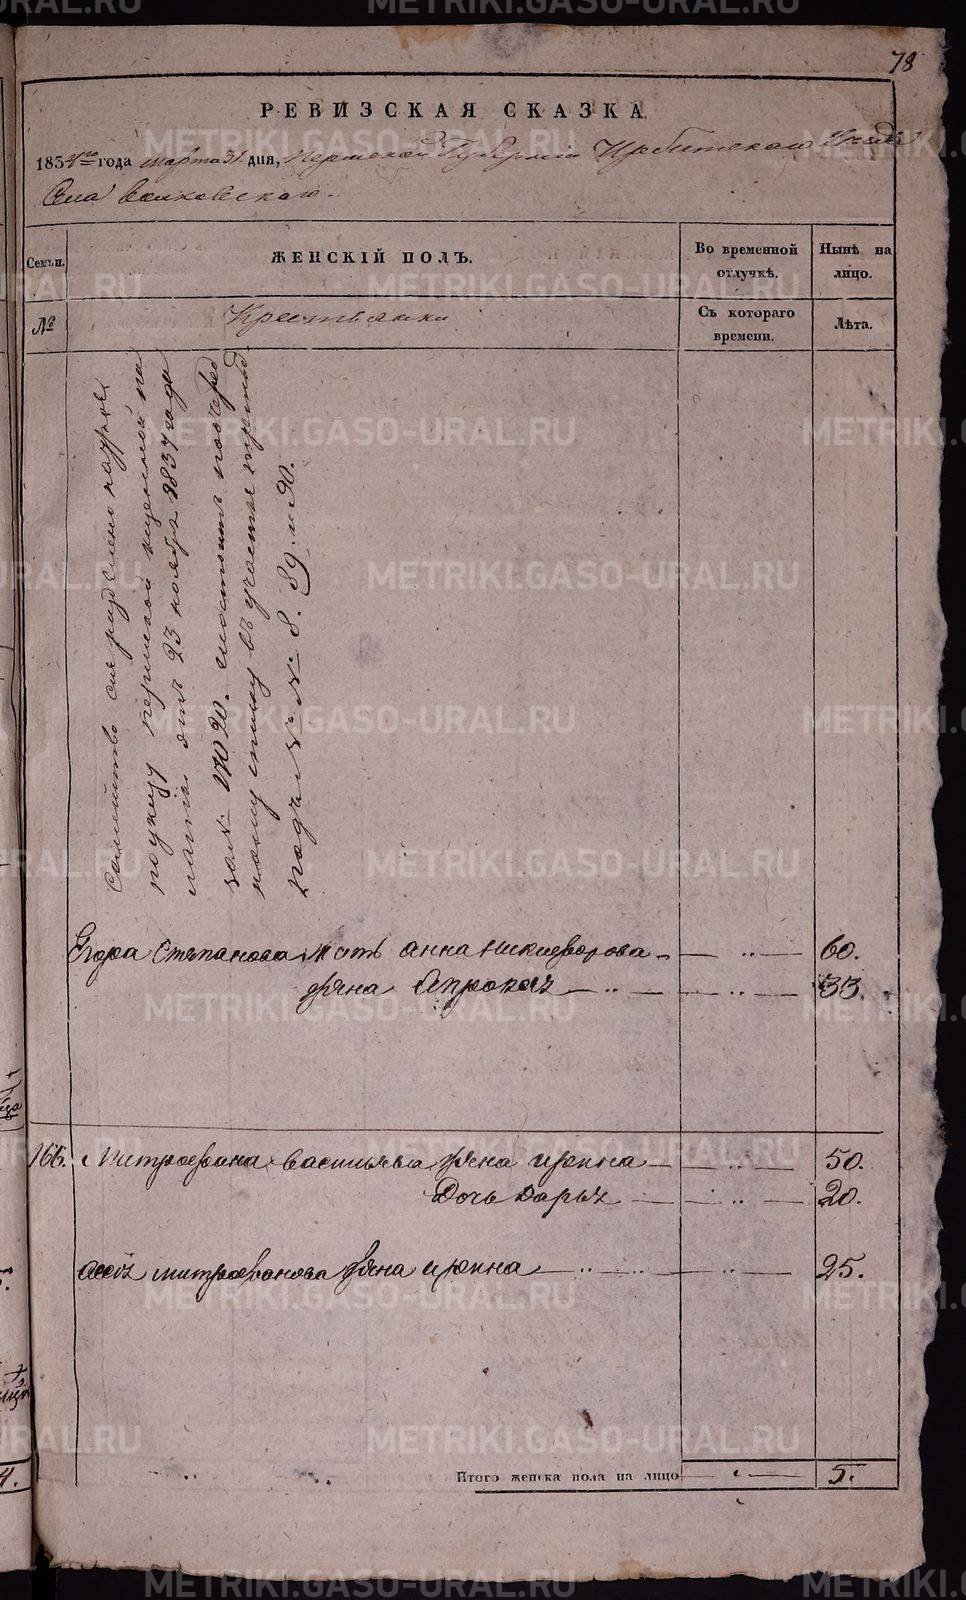 78
РЕВИЗСКАЯ СКАЗКА.
1834го года марта 31 дня, Пермской Губернии Ирбитскаго Уезда
Села Волковскаго.
Семьи.
ЖЕНСКІЙ ПОЛЪ.
Во временной отлучкѣ.
Нынѣ на лицо.
№
Крестьянки
Съ котораго времени.
Лѣта.
Семейство сие
поуказу пермской казенной па
латы отъ 23 ноября 1837 года
за № 17020.
въ участье
подъ № № 8. 89. и 90.
Егора Степанова Мать Анна Никифорова 60.
жена 33.
166. Митрофана Васильева жена Ирина 50.
Дочь Дарья 20.
Митрофанова жена Ирина 25.
Итого женска пола на лицо 5.
METRIKI.GASO-URAL.RU